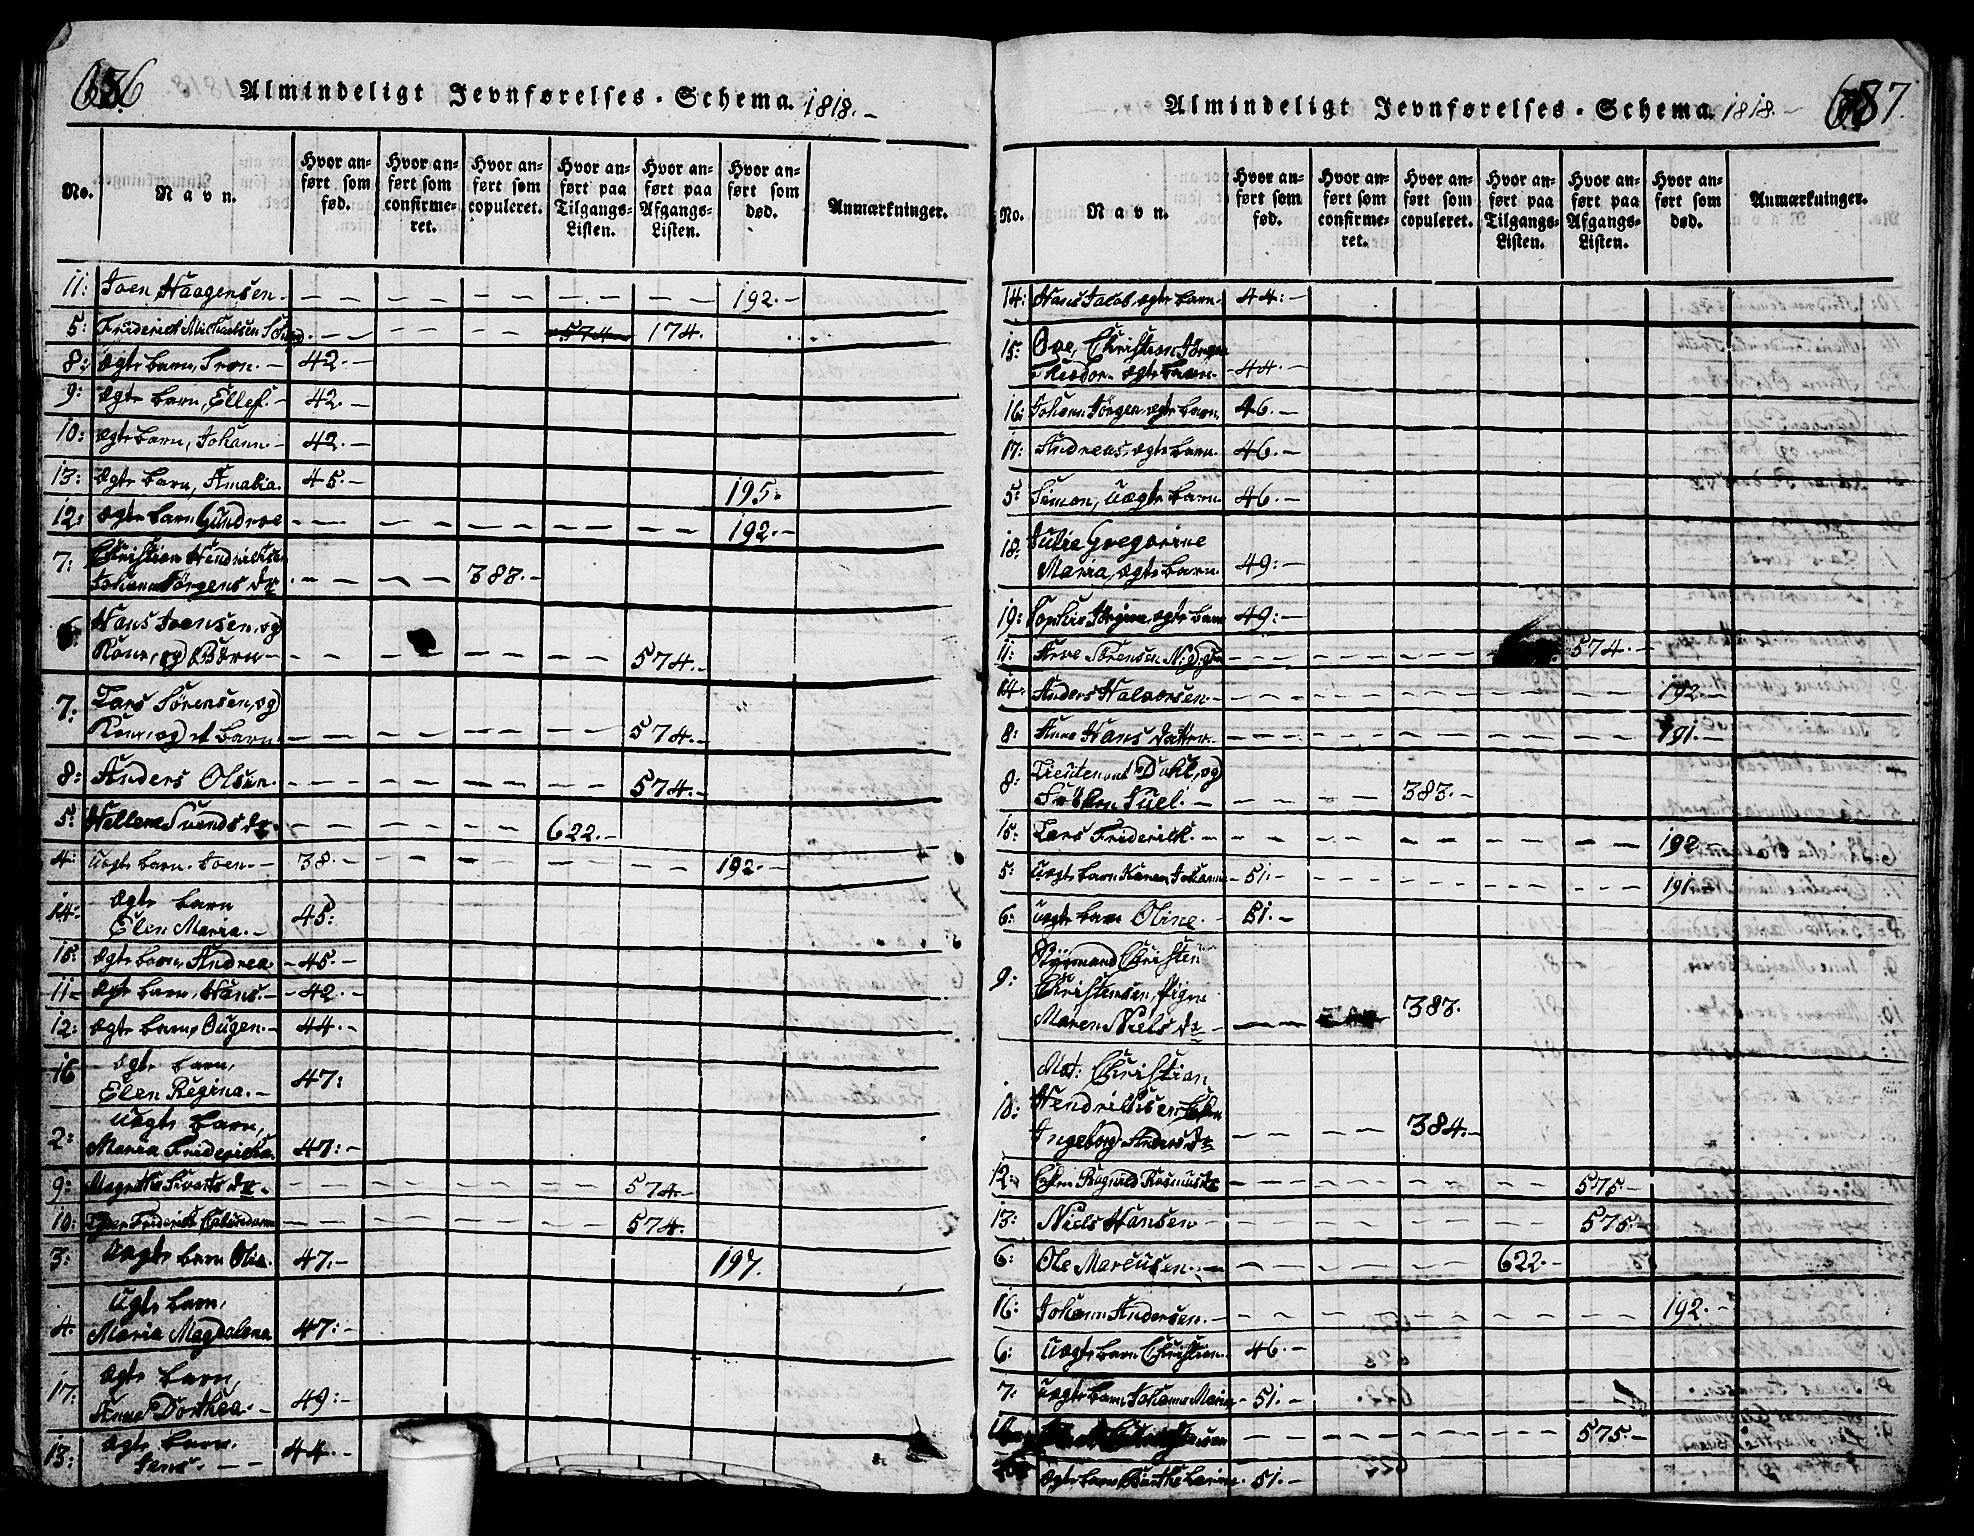 636
Almindeligt Jevnførelses-Schema. 1818.-
No.
Navn.
Hvor anført som fød.
Hvor anført som confirmeret.
Hvor anført som copuleret.
Hvor anført paa Tilgangs-Listen.
Hvor anført paa Afgangs-Listen.
Hvor anført som død.
Anmærkninger.
11: Joen Haagensen. - 192.-
5: Friderich Michaelsen - 574 174.
8: Ægte barn, - 42.-
9: Ægte barn, Ellef. - 42.-
10: Ægte barn, Johann. - 42.-
13: Ægte barn, Amalia. 45.- 195.
12: Ægte barn Gundroe - 192.-
7: Christian Hendrichsen
Johanne Jörgens dr - 388.-
6: Hans Joensen, og
Kone, og Börn - 574.-
7: Lars Sörensen, og
Kone og et barn - 574.-
8: Anders Olsen. - 574.-
5: Hellene Svends dr. - 622.-
4: Uægte barn. Joen. - 38.- 192.-
14: Ægte barn
Elen Maria. - 45:
15: Ægte barn, Andrea - 45.-
11- Ægte barn, Hans. - 42.-
12: Ægte barn, Ougen. - 44.-
16 Ægte barn,
Elen Regina. - 47:
2: Uægte barn,
Maria Friderica. 47:-
9: Siverts dr - 574-
10: Friderich - 574.
3: Uægte barn Olia. 47.- 197.
4. Uægte barn,
Maria Magdalena 47:-
17: Ægte barn,
Anne Dorthea. - 49:-
13: Ægte barn.
Jens. - 44.-
687.
Almindeligt Jevnførelses-Schema. 1818.-
No.
Navn.
Hvor anført som fød.
Hvor anført som confirmeret.
Hvor anført som copuleret.
Hvor anført paa Tilgangs-Listen.
Hvor anført paa Afgangs-Listen.
Hvor anført som død.
Anmærkninger.
14: Hans Jacob, ægte barn. 44:-
15: Ove, Christian Jörgen
Theodor. ægte barn. - 44.-
16: Johan Jörgen, ægte barn. 46.-
17: Andreas, ægte barn. 46.-
5: Simon, uægte barn. 46.-
18: Julie Gregorine
Maria, ægte barn. 49:-
19: Sophie Jörgine, ægte barn 49:-
11: Arve Sörensen - 574.-
14: Anders Halvorsen. - 192.-
8: Anne Hans datter. - 191.-
8: Lieutenant Dahl, og
Fröken Juel. - 383.-
15: Lars Friderik. - 192.-
5: Uægte barn Karen Johanne - 51.- 191.-
6: Uægte barn Oline. - 51.-
9: Styrmand Christen
Christensen, Pigen
Maren Niels dr - 383.
10: Mat: Christian
Hendrichsen,
Ingeborg Anders dr - 384.-
12: Ragnild Rasmus dr - 575.-
13: Niels Hansen - 575.-
6: Ole Marcusen. - 622.-
16: Johan Andersen. - 192.-
6: Uægte barn Christian. 46.-
7. Uægte barn Johanne Maria - 51.-
- 575.-
Ægte barn 51.-